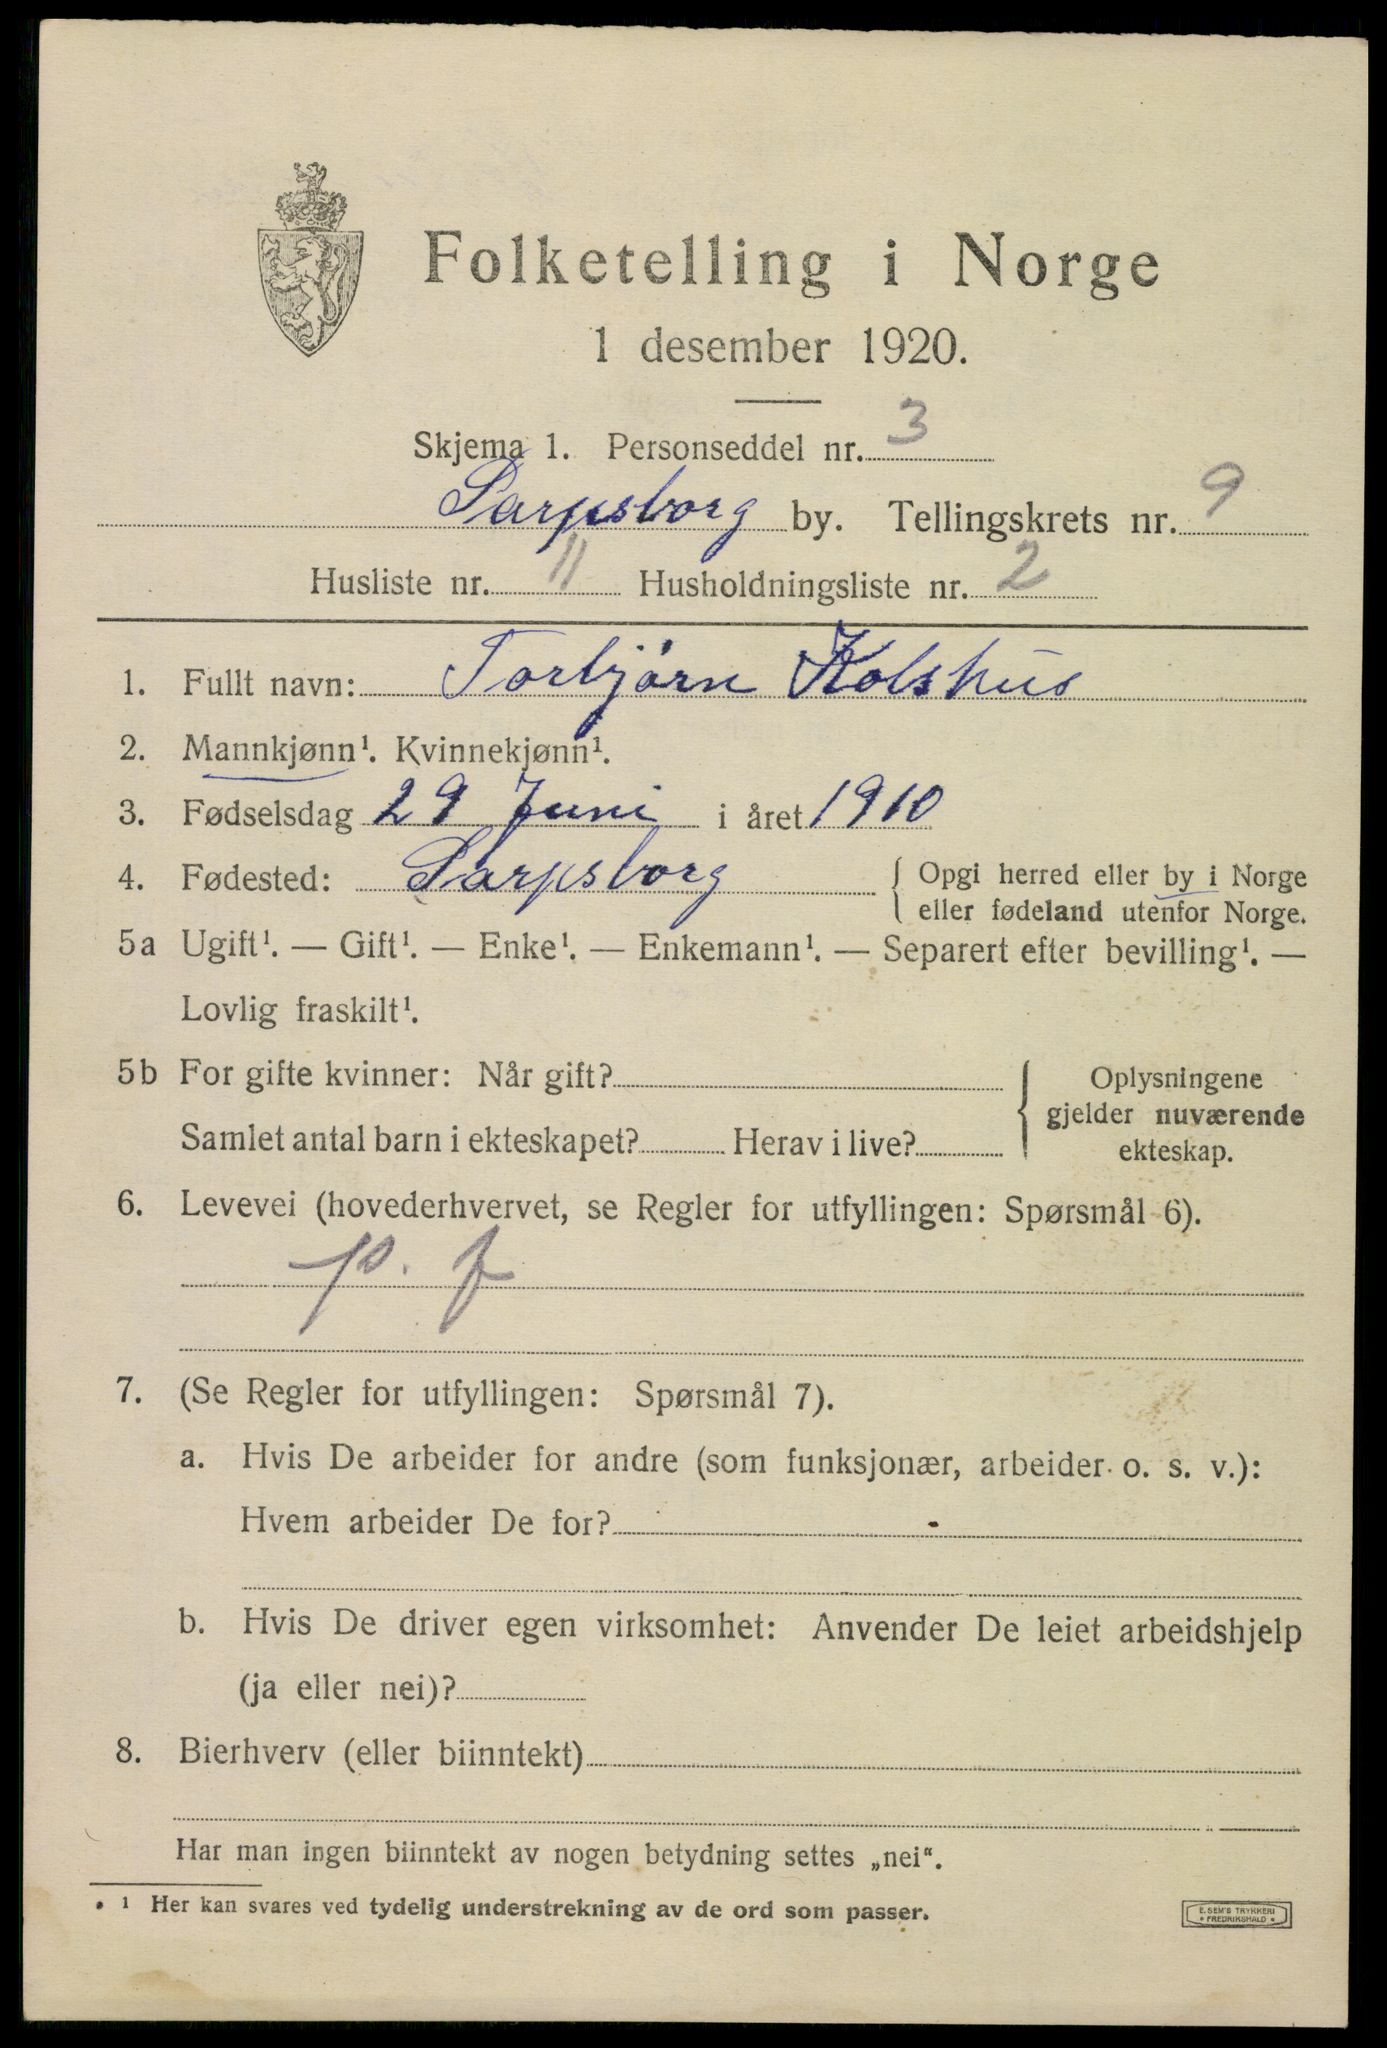 Folketelling i Norge
1 desember 1920.
Skjema 1. Personseddel nr. 3
Sarpsborg by. Tellingskrets nr. 9
Husliste nr. 11 Husholdningsliste nr. 2
1. Fullt navn: Torbjørn Kolshus
2. Mannkjønn¹. Kvinnekjønn¹.
3. Fødselsdag 29 Juni i året 1910
4. Fødested: Sarpsborg { Opgi herred eller by i Norge
eller fødeland utenfor Norge.
5a Ugift¹. — Gift¹. — Enke¹. — Enkemann¹. — Separert efter bevilling¹. —
Lovlig fraskilt¹.
5b For gifte kvinner: Når gift? { Oplysningene
gjelder nuværende
Samlet antal barn i ekteskapet? Herav i live?
ekteskap.
6. Levevei (hovederhvervet, se Regler for utfyllingen: Spørsmål 6).
p. f
7. (Se Regler for utfyllingen: Spørsmål 7).
a. Hvis De arbeider for andre (som funksjonær, arbeider o. s. v.):
Hvem arbeider De for?
b. Hvis De driver egen virksomhet: Anvender De leiet arbeidshjelp
(ja eller nei)?
8. Bierhverv (eller biinntekt)
Har man ingen biinntekt av nogen betydning settes „nei“.
¹ Her kan svares ved tydelig understrekning av de ord som passer.
E. SEM'S TRYKKERI
FREDRIKSHALD